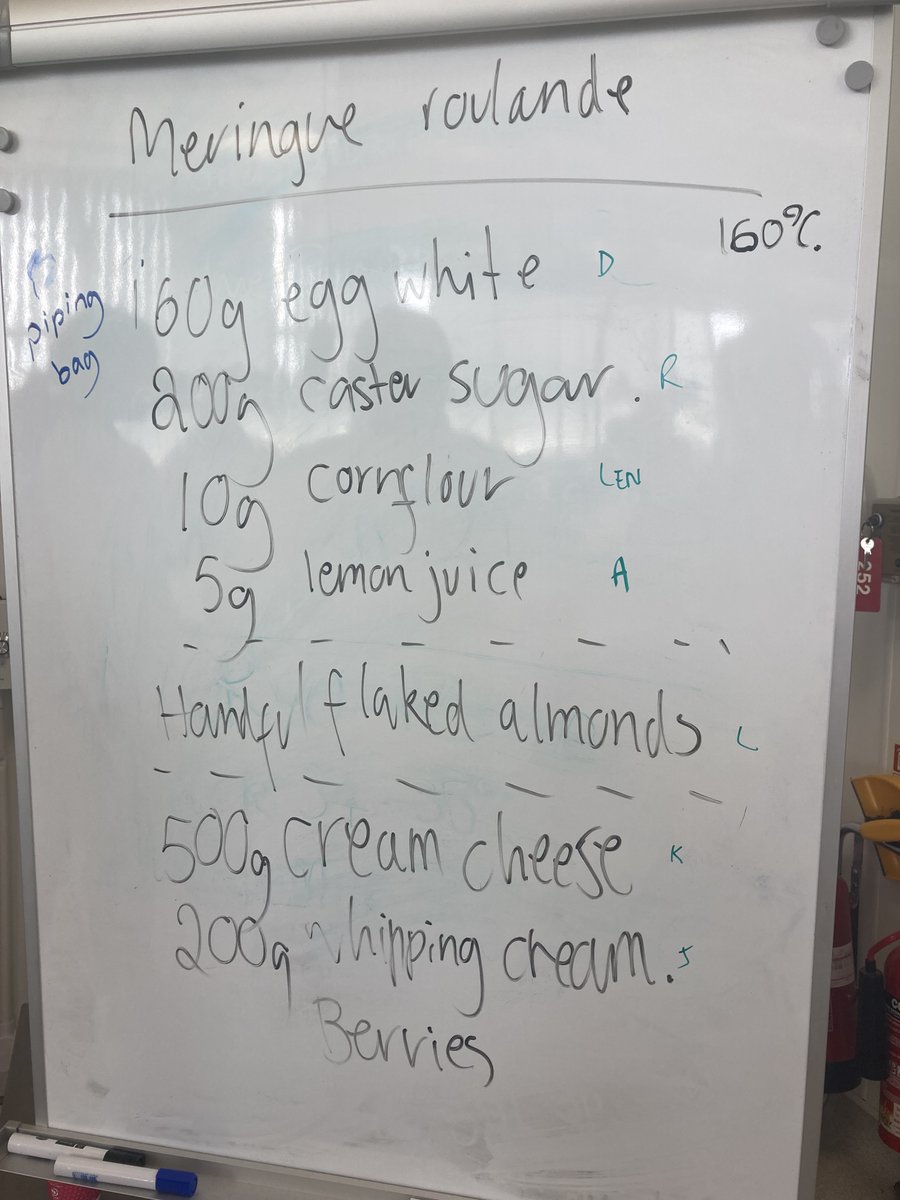 Meringue roulande
160°C.
160g egg white D
piping
bag
200g caster sugar. R
10g cornflour LEN
5g lemon juice A
Handful flaked almonds L
500g cream cheese K
200g whipping cream. J
Berries
252